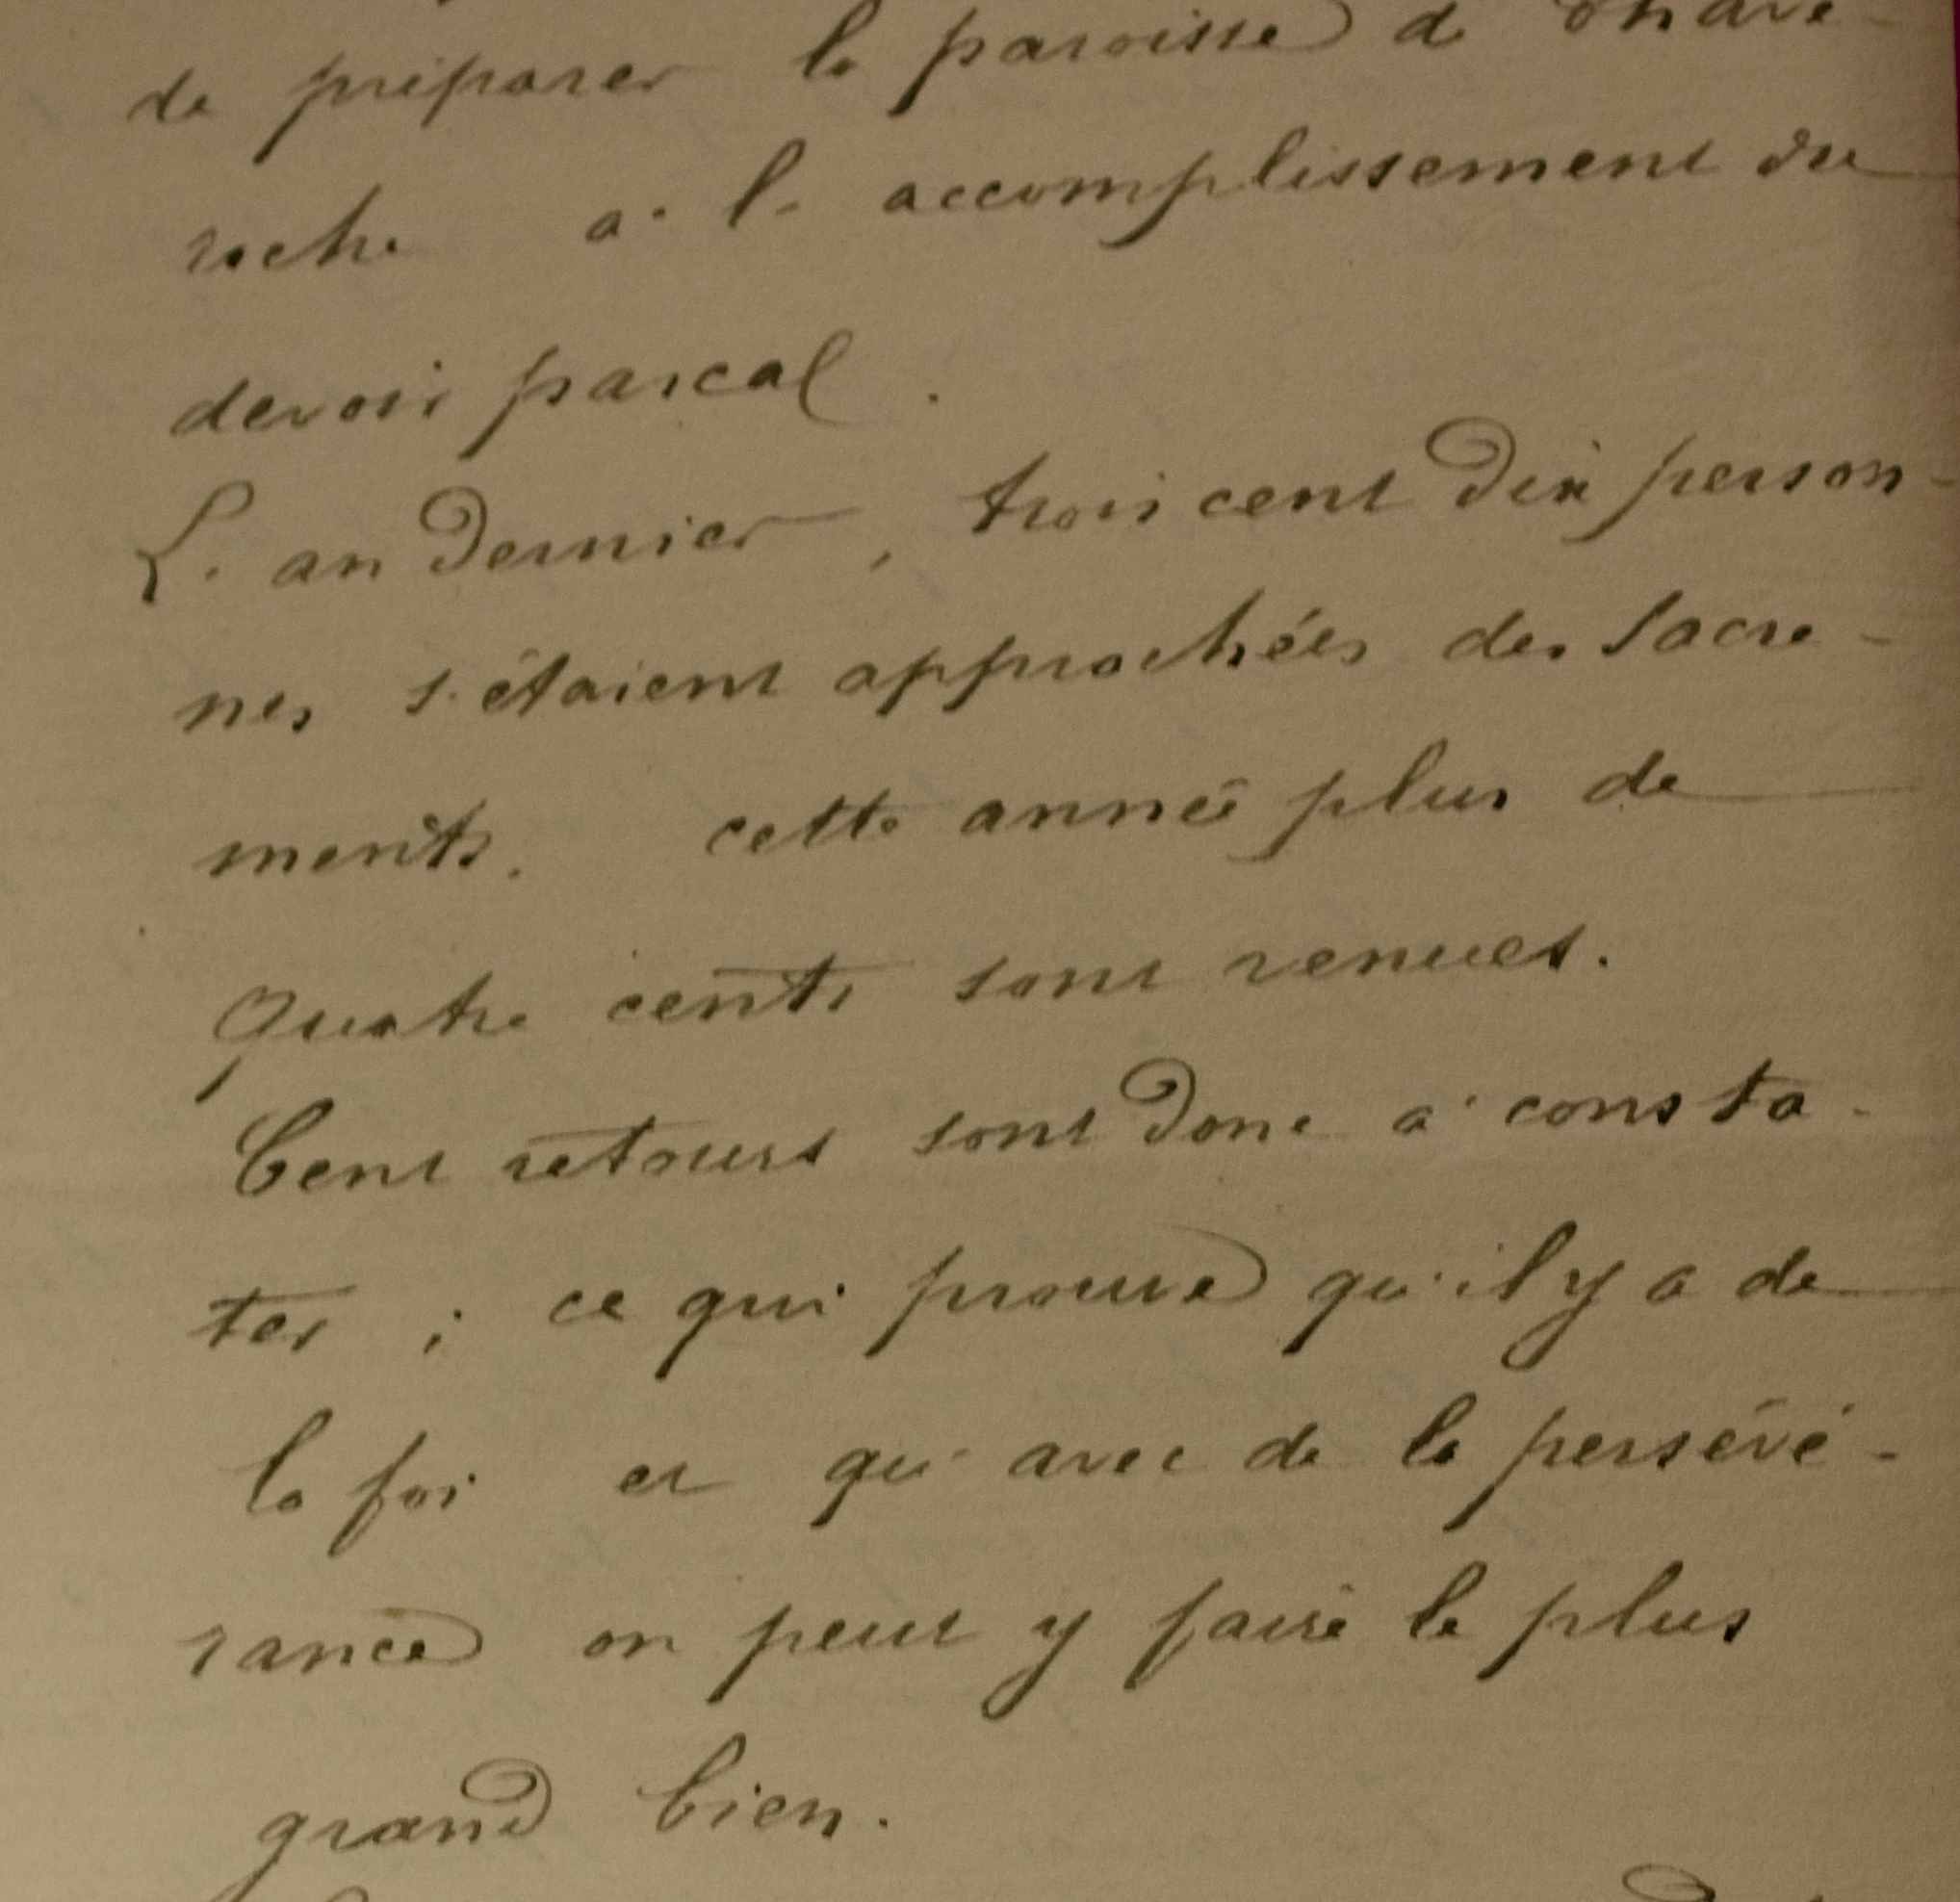 de préparer la paroisse d'Availe-
roche à l'accomplissement du
devoir pascal.
L'an dernier, trois cent dix person-
nes s'étaient approchées des Sacre-
ments. cette année plus de
quatre cents sont venues.
Cent retours sont donc à consta-
ter ; ce qui prouve qu'il y a de
la foi et qu'avec de la persévé-
rance on peut y faire le plus
grand bien.